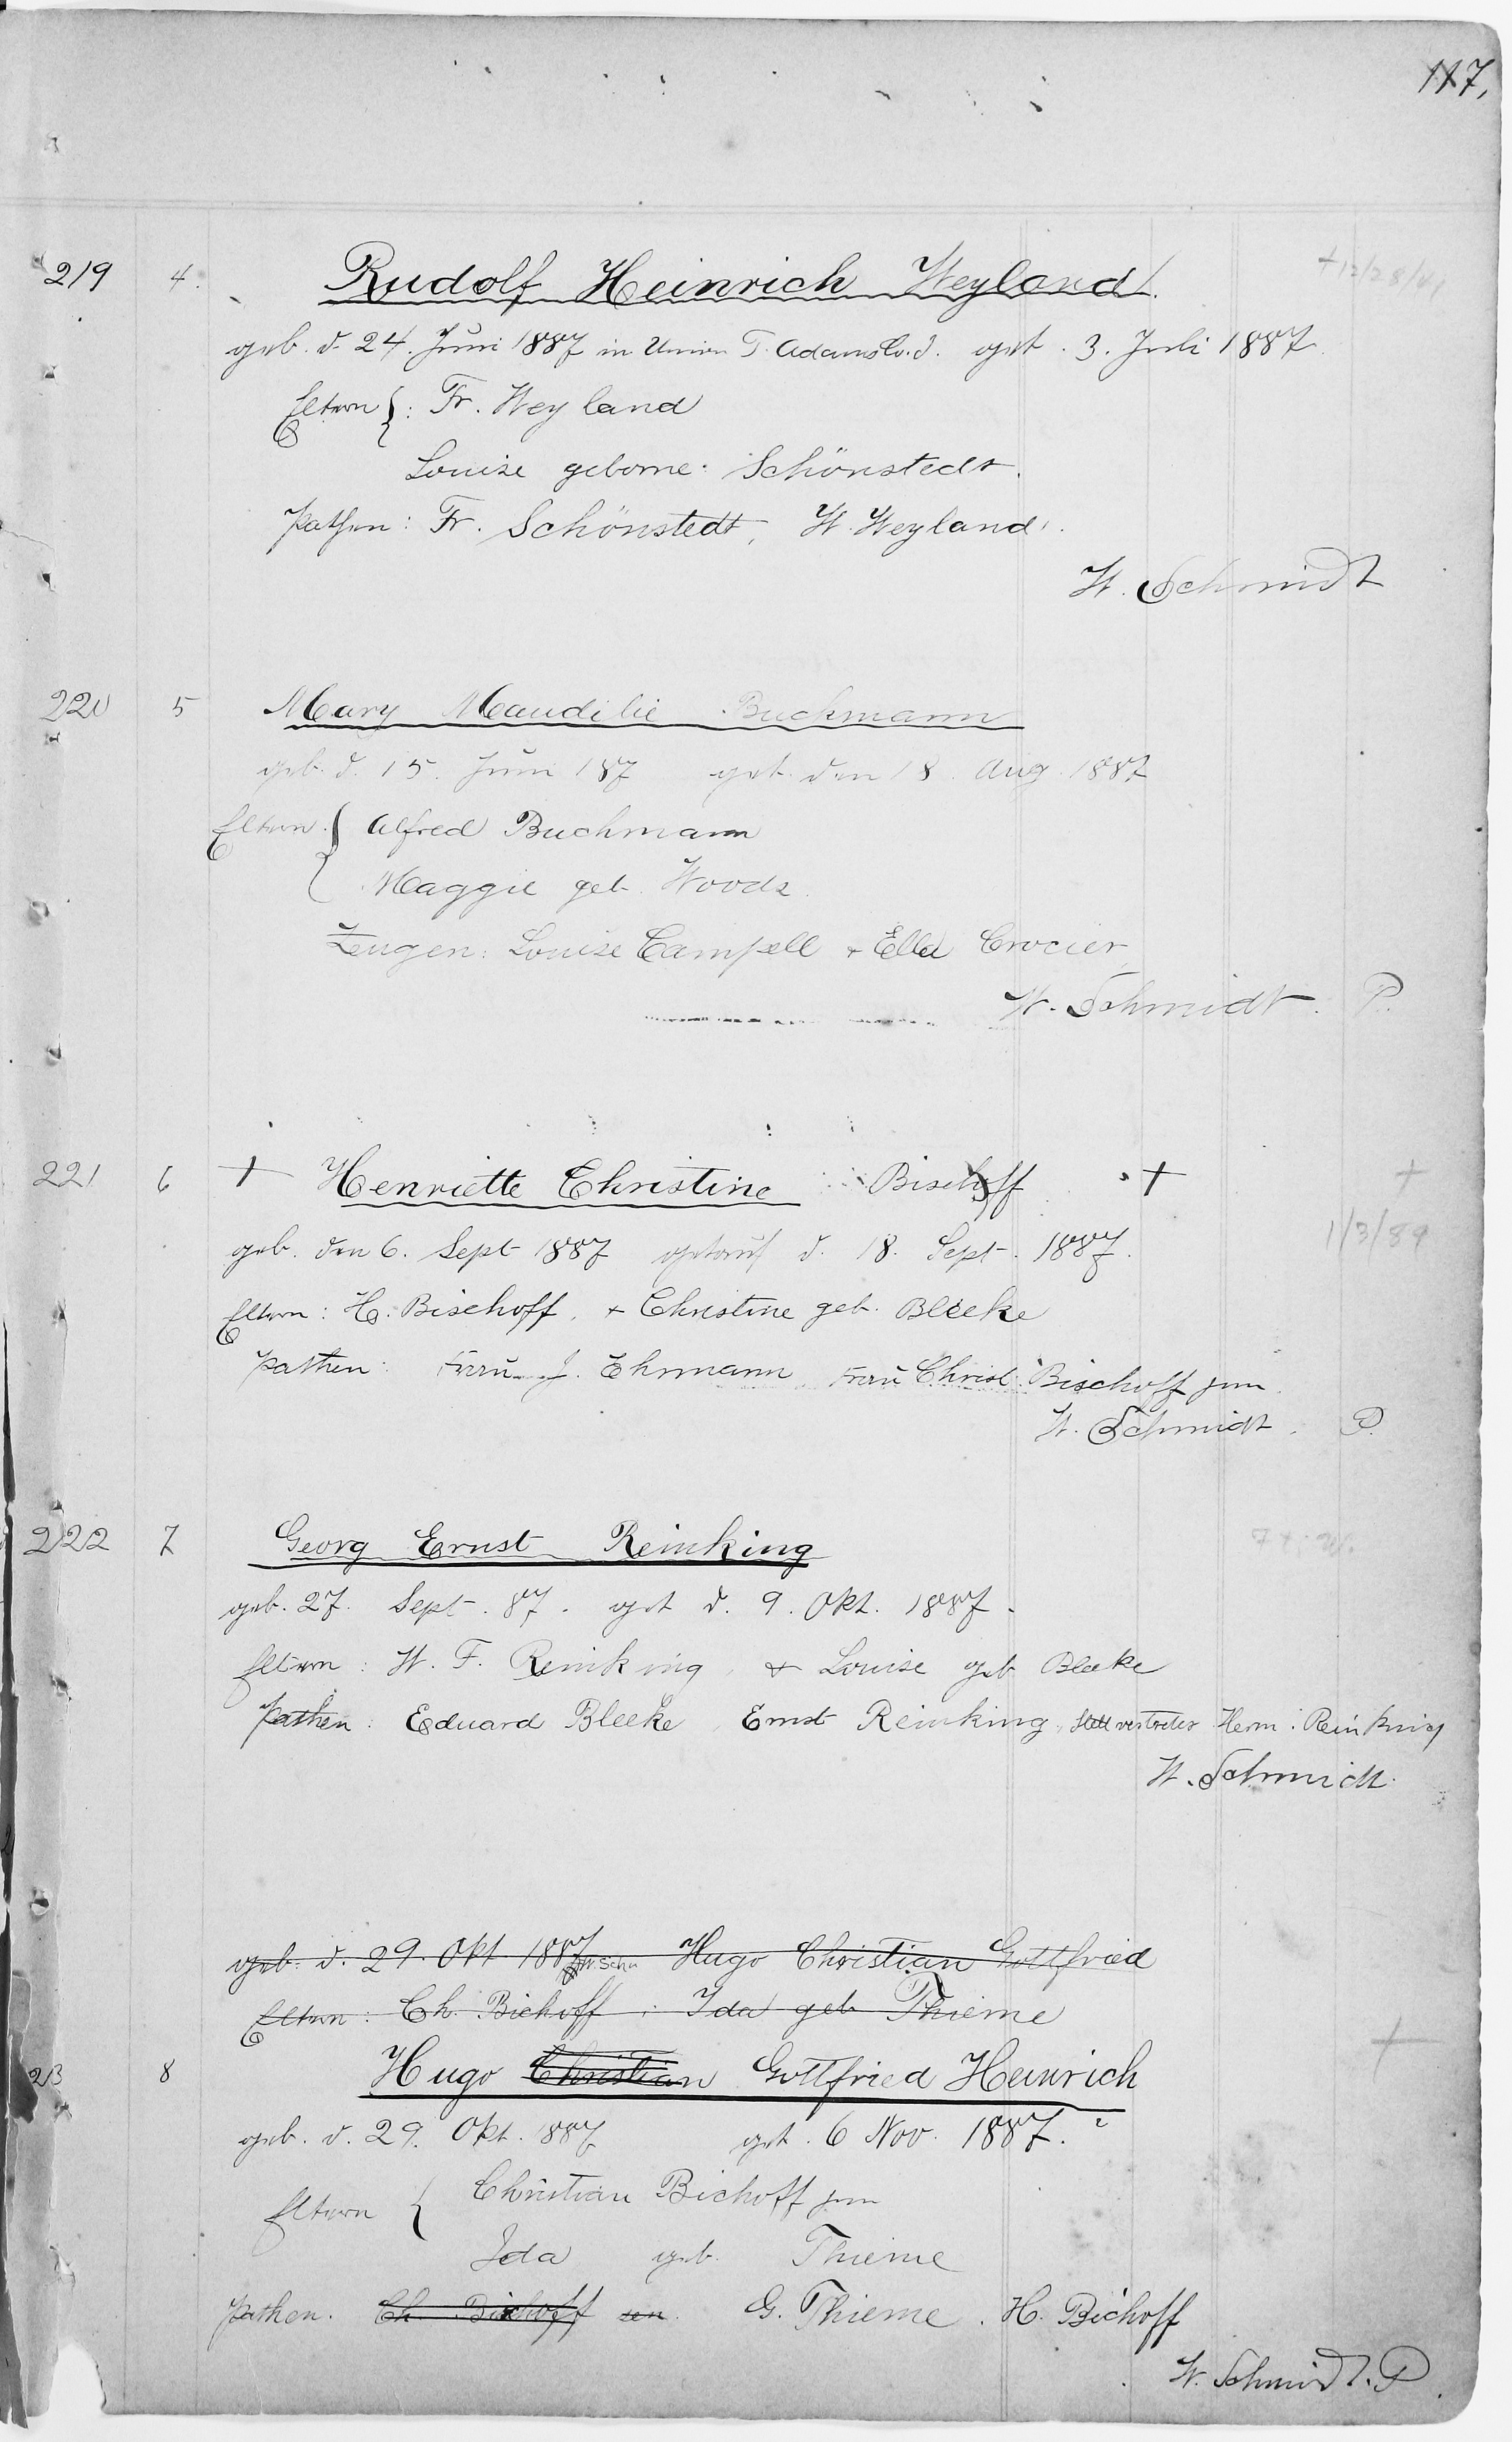 117,
219 4. Rudolf Heinrich Weyland
+12/28/41
geb. d. 24. Juni 1887 in Union T. Adams Co. J. get. 3. Juli 1887.
Eltern: Fr. Weyland
Louise geborne: Schönstedt.
Pathen: Fr. Schönstedt, W. Weyland.
W. Schmidt
220 5 Mary Maudilie Buchmann
geb. d. 15. Juni 187 get. den 18. Aug. 1887
Eltern. Alfred Buchmann
Maggie geb. Woods.
Zeugen: Louise Campell + Ella Crocier
W. Schmidt. P.
221 6 + Henriette Christine Bischoff + +
geb. den 6. Sept 1887 getauf d. 18. Sept. 1887.
1/3/89
Eltern: H. Bischoff. + Christine geb. Bleeke
Pathen: Frau J. Ehrmann Frau Christ. Bischoff jun.
W. Schmidt. P.
222 7 Georg Ernst Reinking
geb. 27. Sept. 87. get d. 9. Okt. 1887.
Eltern: W. F. Reinking, + Louise geb Bleeke
Pathen: Eduard Bleeke, Ernst Reinking, Stellvertreter Herm. Reinking
W. Schmidt.
geb. d. 29. Okt 1887 W. Sch. Hugo Christian Gottfried
Eltern: Ch. Bichoff. Ida geb Thieme
+
23 8 Hugo Christian Gottfried Heinrich
geb. d. 29. Okt. 1887 get. 6 Nov. 1887.
Eltern Christian Bichoff jun
Ida geb. Thieme
Pathen. Ch. Bichoff sen. G. Thieme. H. Bichoff
W. Schmidt. P.